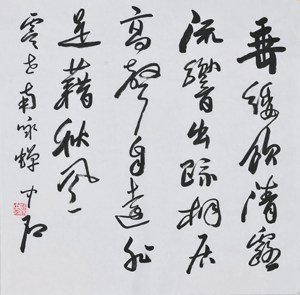 垂緌飲清露
流響出疏桐居
高聲自遠非
是藉秋風
虞世南咏蟬 中石